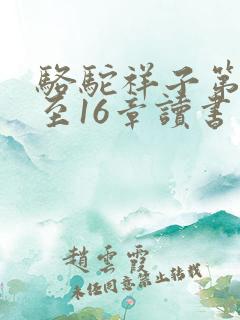 駱駝祥子第
至16章讀書
趙雲霞
未任同意禁止转载